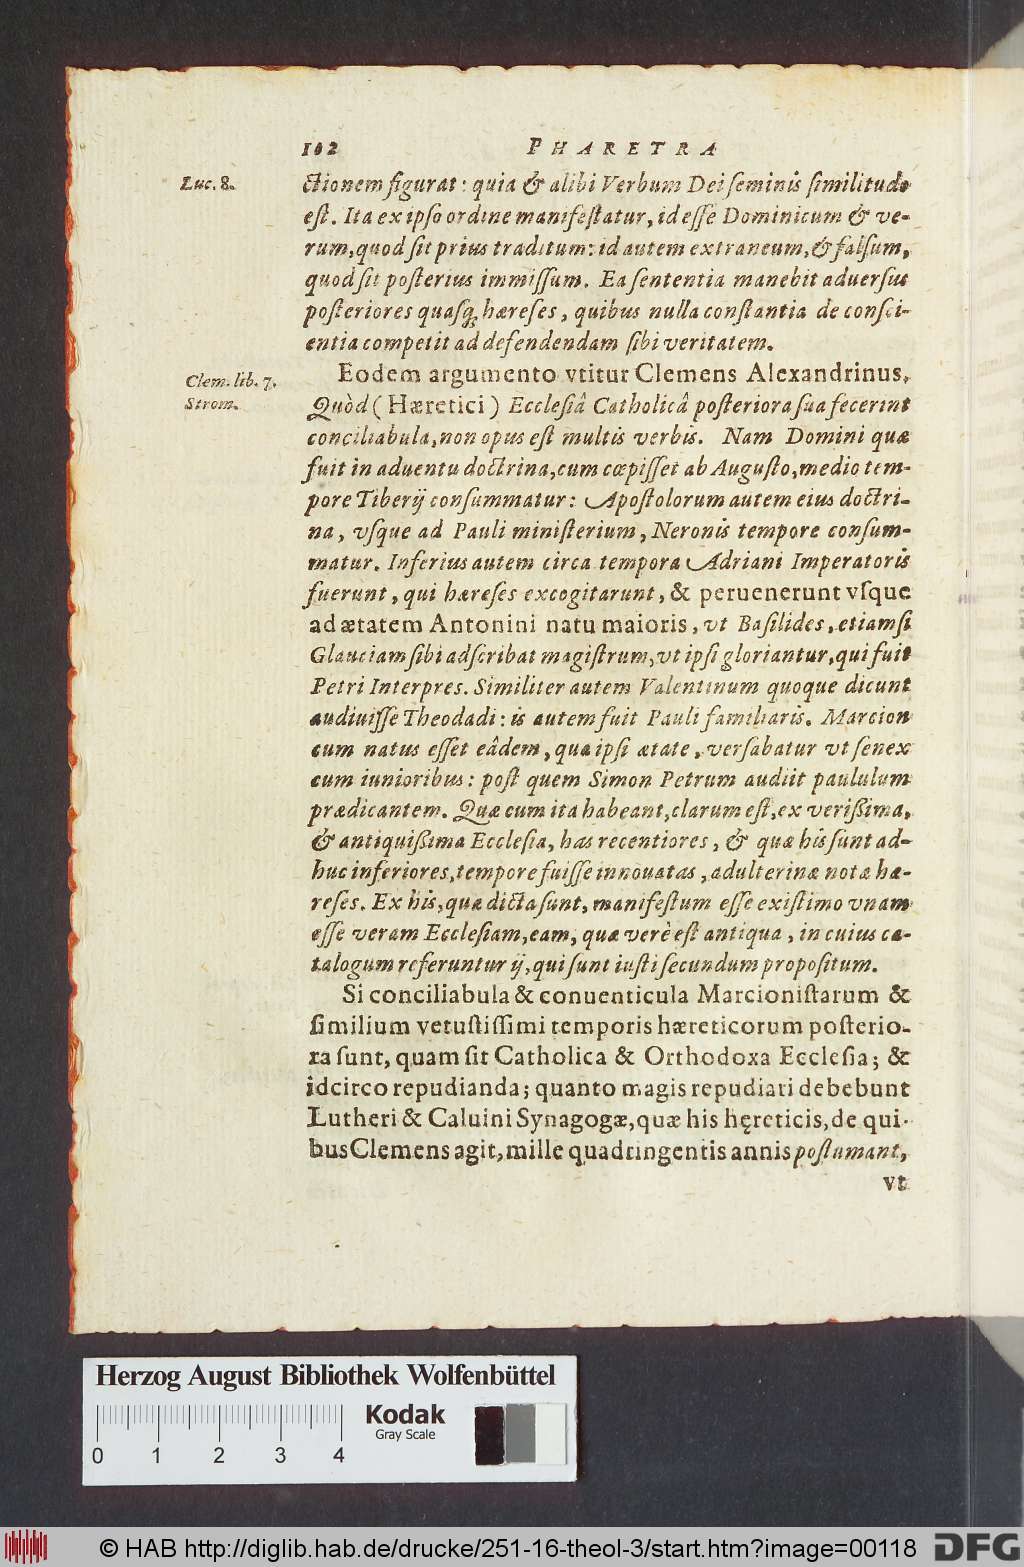 102 PHARETRA
Luc. 8.
ctionem figurat: quia & alibi Verbum Dei seminis similitudo
est. Ita ex ipso ordine manifestatur, id esse Dominicum & ve-
rum, quod sit prius traditum: id autem extraneum, & falsum,
quod sit posterius immissum. Ea sententia manebit aduersus
posteriores quasq́; hæreses, quibus nulla constantia de consci-
entia competit ad defendendam sibi veritatem.
Clem. lib. 7.
Strom.
Eodem argumento vtitur Clemens Alexandrinus,
Quòd (Hæretici) Ecclesiâ Catholicâ posteriora sua fecerint
conciliabula, non opus est multis verbis. Nam Domini quæ
fuit in aduentu doctrina, cum cœpisset ab Augusto, medio tem-
pore Tiberij consummatur: Apostolorum autem eius doctri-
na, vsque ad Pauli ministerium, Neronis tempore consum-
matur. Inferius autem circa tempora Adriani Imperatoris
fuerunt, qui hæreses excogitarunt, & peruenerunt vsque
ad ætatem Antonini natu maioris, vt Basilides, etiamsi
Glauciam sibi adscribat magistrum, vt ipsi gloriantur, qui fuit
Petri Interpres. Similiter autem Valentinum quoque dicunt
audiuisse Theodadi: is autem fuit Pauli familiaris. Marcion
cum natus esset eâdem, qua ipsi ætate, versabatur vt senex
cum iunioribus: post quem Simon Petrum audiit paululum
prædicantem. Quæ cum ita habeant, clarum est, ex verißima,
& antiquißima Ecclesia, has recentiores, & quæ his sunt ad-
huc inferiores, tempore fuisse innouatas, adulterinæ notæ hæ-
reses. Ex his, quæ dicta sunt, manifestum esse existimo vnam
esse veram Ecclesiam, eam, quæ verè est antiqua, in cuius ca-
talogum referuntur ij, qui sunt iusti secundum propositum.
Si conciliabula & conuenticula Marcionistarum &
similium vetustissimi temporis hæreticorum posterio-
ra sunt, quam sit Catholica & Orthodoxa Ecclesia; &
idcirco repudianda; quanto magis repudiari debebunt
Lutheri & Caluini Synagogæ, quæ his hęreticis, de qui-
bus Clemens agit, mille quadringentis annis postumant,
vt
Herzog August Bibliothek Wolfenbüttel
Kodak
Gray Scale
0 1 2 3 4
© HAB http://diglib.hab.de/drucke/251-16-theol-3/start.htm?image=00118
DFG